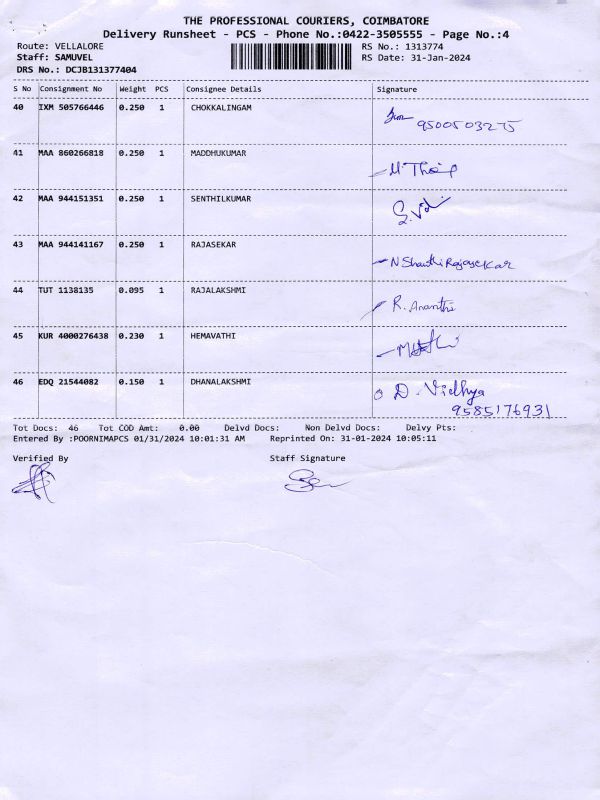 THE PROFESSIONAL COURIERS, COIMBATORE
Delivery Runsheet - PCS - Phone No.:0422-3505555 - Page No.:4
Route: VELLALORE RS No.: 1313774
Staff: SAMUVEL RS Date: 31-Jan-2024
DRS No.: DCJB131377404
S No Consignment No Weight PCS Consignee Details Signature
40 IXM 505766446 0.250 1 CHOKKALINGAM
9500503275
41 MAA 860266818 0.250 1 MADDHUKUMAR
42 MAA 944151351 0.250 1 SENTHILKUMAR
43 MAA 944141167 0.250 1 RAJASEKAR
N Shanthi Rajasekar
44 TUT 1138135 0.095 1 RAJALAKSHMI
R. Ananthi
45 KUR 4000276438 0.230 1 HEMAVATHI
46 EDQ 21544082 0.150 1 DHANALAKSHMI
D. Vidhya
9585176931
Tot Docs: 46 Tot COD Amt: 0.00 Delvd Docs: Non Delvd Docs: Delvy Pts:
Entered By :POORNIMAPCS 01/31/2024 10:01:31 AM Reprinted On: 31-01-2024 10:05:11
Verified By Staff Signature